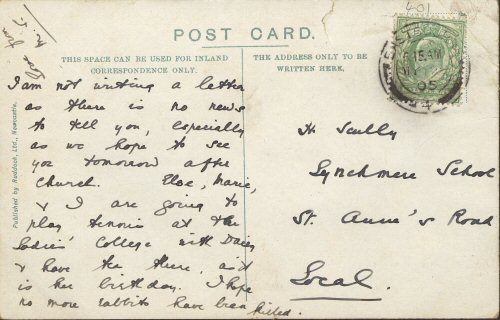 401
POST CARD.
THIS SPACE CAN BE USED FOR INLAND
CORRESPONDENCE ONLY.
THE ADDRESS ONLY TO BE
WRITTEN HERE.
I am not writing a letter
as there is no news
to tell you, especially
as we hope to see
you tomorrow after
Church. Marie,
& I are going to
play tennis at the
Ladies' College with
& have tea there, as it
is her birthday. I hope
no more rabbits have been killed.
H Scully
Lynchmere School
St. Anne's Road
Local.
Published by Ruddock, Ltd., Newcastle.